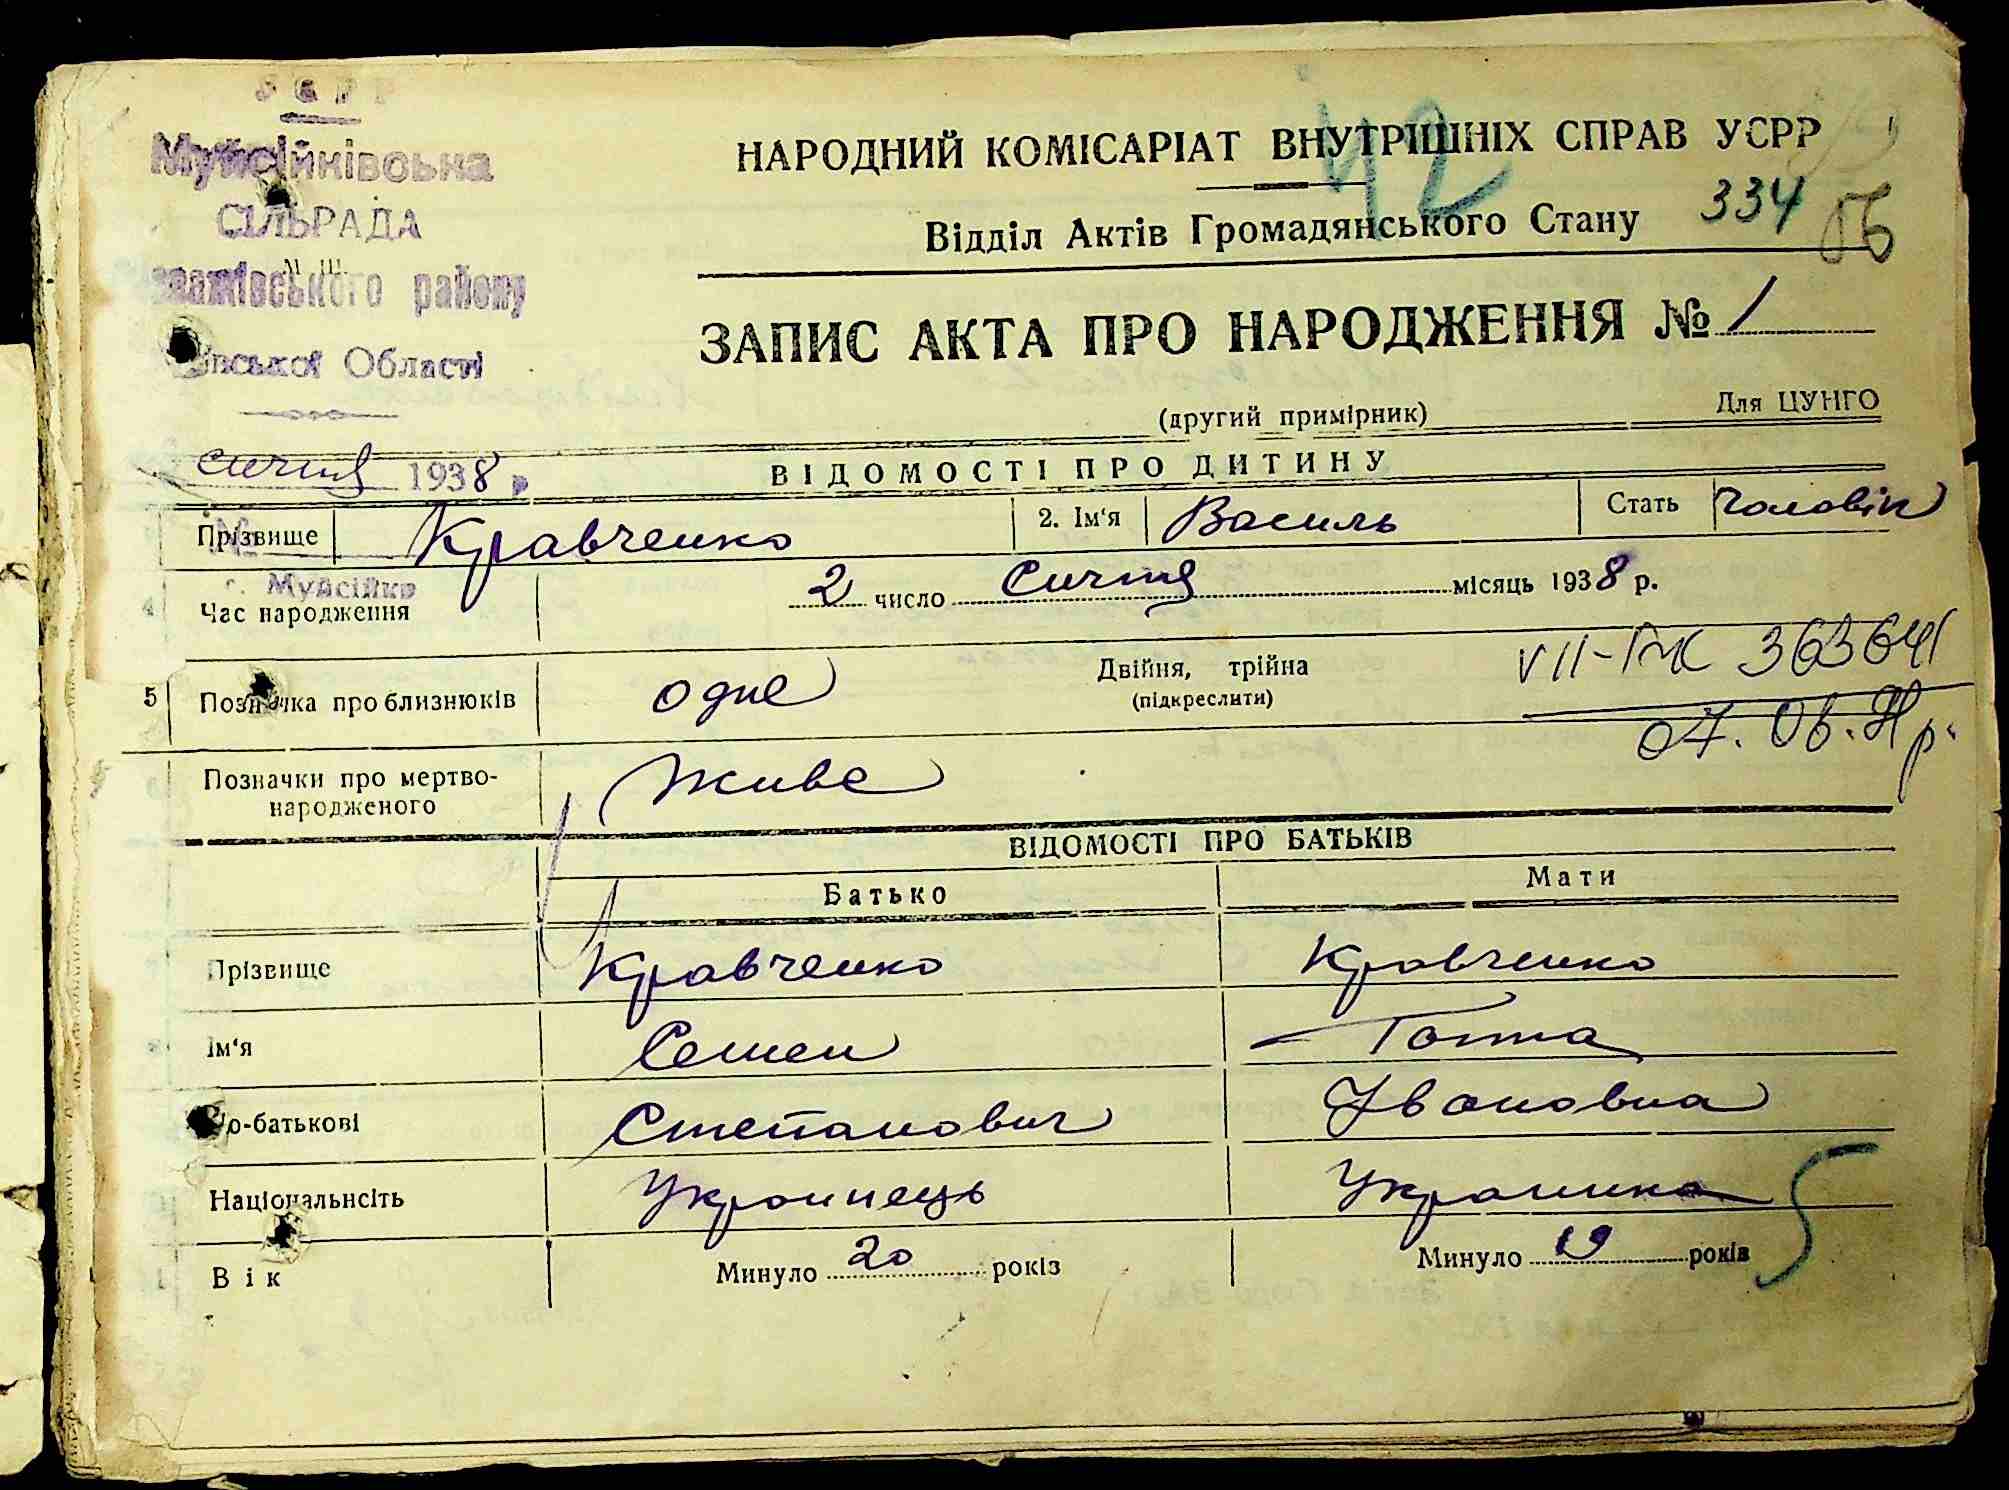 УСРР
Муйсійківська
СІЛЬРАДА
району
Області
НАРОДНИЙ КОМІСАРІАТ ВНУТРІШНІХ СПРАВ УСРР
42
Відділ Актів Громадянського Стану 334
ЗАПИС АКТА ПРО НАРОДЖЕННЯ № 1
(другий примірник) Для ЦУНГО
січня 1938 р.
ВІДОМОСТІ ПРО ДИТИНУ
Прізвище Кравченко 2. Ім'я Василь Стать Чоловік
№
с. Муйсійки
4 Час народження 2 число Січня місяць 1938 р.
5 Позначка про близнюків одне Двійня, трійна
(підкреслити)
363641
07. 06.
Позначки про мертво-
народженого Живе
ВІДОМОСТІ ПРО БАТЬКІВ
Батько Мати
Прізвище Кравченко Кравченко
Ім'я Семен Ганна
По-батькові Степанович Івановна
Національнсіть Украинець Украинка
5
Вік Минуло 20 років Минуло 19 років